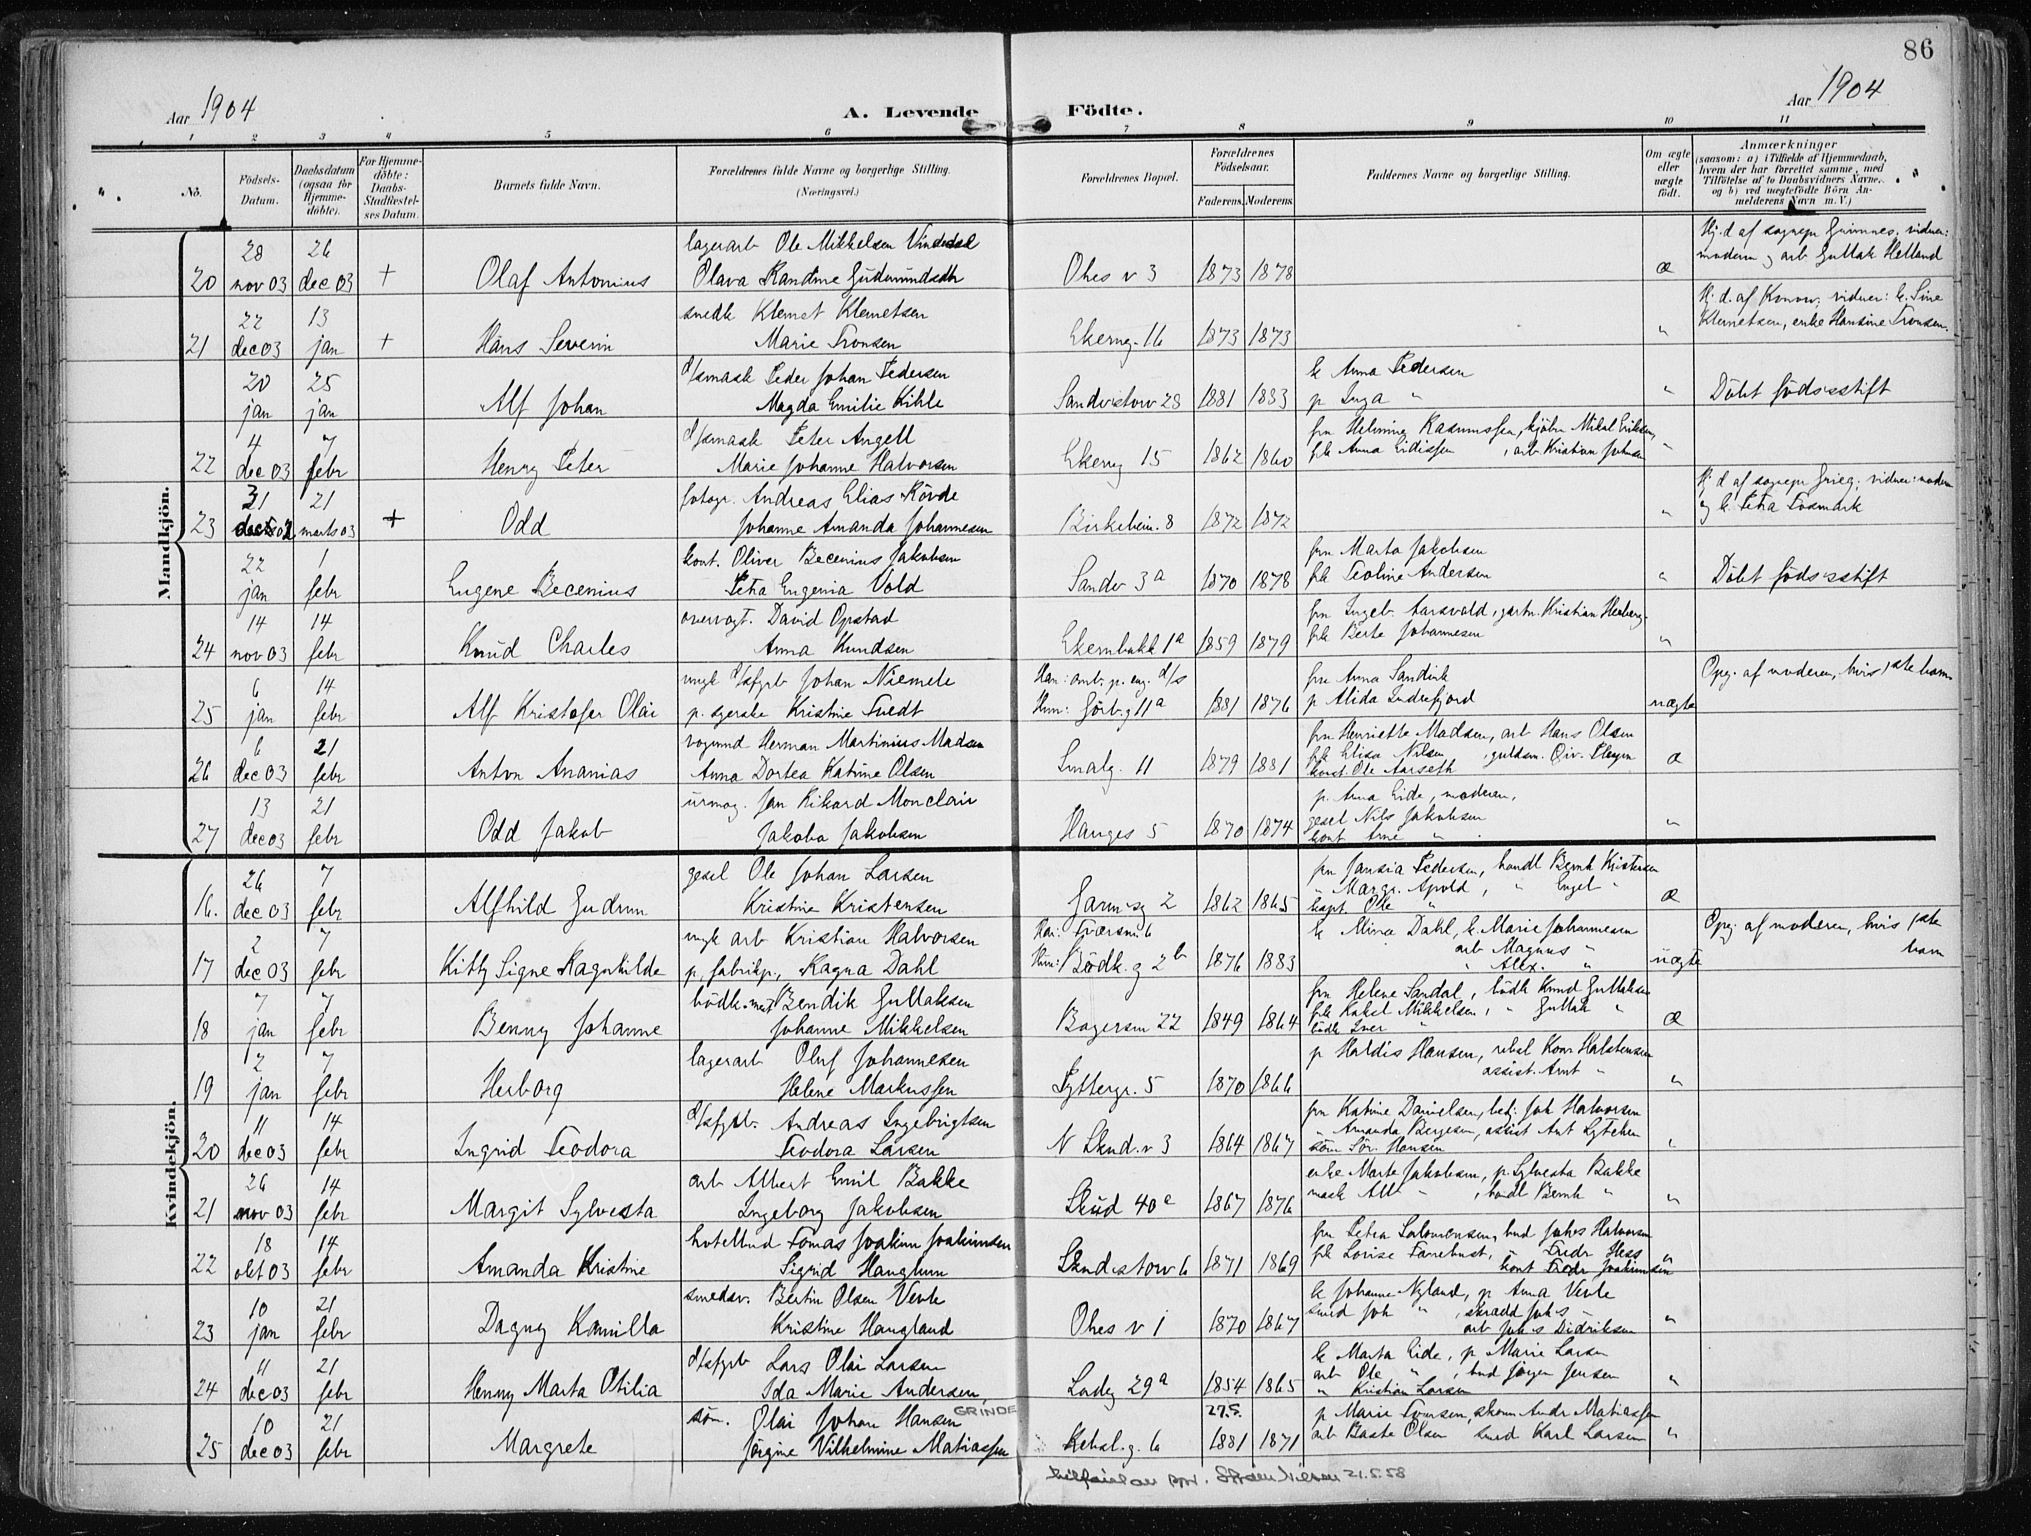 86
Aar 1904
A. Levende Födte.
Aar 1904
1 2 3 4 5 6 7 8 9 10 11
No.
Födsels-Datum.
Daabsdatum (ogsaa for Hjemme-döbte).
For Hjemme-döbte: Daabs-Stadfæstel-ses Datum.
Barnets fulde Navn.
Forældrenes fulde Navne og borgerlige Stilling.
(Næringsvei.)
Forældrenes Bopæl.
Forældrenes Födselsaar.
Faderens. Moderens.
Faddernes Navne og borgerlige Stilling.
Om ægte eller uægte födt.
Anmærkninger
(saasom: a) i Tilfælde af Hjemmedaab,
hvem der har forrettet samme, med
Tilföielse af to Daabsvidners Navne,
og b) ved uægtefödte Börn An-
melderens Navn m. V.)
Mandkjön.
28 26 lagerarb Ole Mikkelsen Vindedal Hj. d. af sogнepr Grimnes, vidner:
20 nov 03 dec 03 + Olaf Antonius Olava Randine Gudmundsdtr Ohes v 3 1873 1878 æ moderen og arb Gullak Helland
22 13 smedk Klemet Klemetsen Hj. d. af Konow; vidner: k. Sine
21 dec 03 jan + Hans Severin Marie Tronsen Ekerneg. 16 1873 1873 " Klemetsen, enke Hansine Tronsen.
20 25 d/smask Peder Johan Pedersen k Anna Pedersen
jan jan Alf Johan Magda Emilie Kihle Sandvistorv 28 1881 1883 p Inga " " Döbt fødselsstift
4 7 d/smask Peter Angell fru Helmine Rasmussen, kjøbm Mikal Eriksen,
22 dec 03 febr Henry Peter Marie Johanne Halvorsen Ekerneg 15 1862 1860 frk Anna , arb. Kristian Johnsen "
31 21 fotogr. Andreas Elias Rövde Hj. d. af sognepr Grieg; vidner: moderen
23 dec 02 marts 03 + Odd Johanne Amanda Johannesen Birkebein. 8 1872 1872 " og k. Petra Fosmark
22 1 kont. Oliver Becenius Jakobsen fru Marta Jakobsen
jan febr Eugene Becenius Petra Eugenia Vold Sandv 3a 1870 1878 frk Teoline Andersen " Döbt fødselsstift
14 14 overvogt. David Opstad fru Ingeb. Aarsvold, gartn. Kristian
24 nov 03 febr Knud Charles Anna Knudsen Ekernbakk 1a 1859 1879 frk Berte Johannesen "
6 14 ungk d/sfyrb Johan Niemele Han: omb. p. eng. d/s fru Anna Sandvik Opg. af moderen, hvis 1ste barn
25 jan febr Alf Kristofer Olai p. syerske Kristine Tvedt Hun: Görb.g 11a 1881 1876 p Alida Indrefjord uægte
6 21 vognmd Herman Martinius Madsen fru Henriette Madsen, arb Hans Olsen
26 dec 03 febr Anton Ananias Anna Dortea Katrine Olsen Smalg. 11 1879 1881 frk Elisa Nilsen , guldsm. æ
kont. Ole Aarseth
13 21 urmag. Jan Rikard Monclair p. Anna Eide, moderen,
27 dec 03 febr Odd Jakob Jakoba Jakobsen Hauges 5 1870 1874 gesel Nils Jakobsen "
kont Arne "
Kvindekjön.
26 7 gesel Ole Johan Larsen fru Jansia Pedersen, handl Bernh Kristensen
16. dec 03 febr Alfhild Gudrun Kristine Kristensen 2 1862 1865 " Margr. Apold, " Engel " æ
kapt. Ole "
2 7 ungk arb Kristian Halvorsen Han: Tværsm. 6 k Mina Dahl, k. Marie Johannesen Opg. af moderen, hvis 1ste
17 dec 03 febr Kitty Signe Ragnhilde p, fabrikp, Ragna Dahl Hun: Bödk.g 2b 1876 1883 arb Magnus " uægte barn
" Alex. "
7 7 bödk.mst Bendik Gullaksen fru Helene Sandal, bödk Knud Gullaksen
18 jan febr Benny Johanne Johanne Mikkelsen Bagersm 22 1849 1864 frk Rakel Mikkelsen, " Gullak " æ
bödk Iver "
2 7 lagerarb Oluf Johannesen p Haldis Hansen, rebsl Konr Halstensen
19 jan febr Herborg Helene Markussen Pyttergr. 5 1870 1866 assist. Arnt " "
11 14 d/sfyrb. Andreas Ingebrigtsen fru Katrine Danielsen, betj. Joh Halvorsen
20 dec 03 febr Ingrid Teodora Teodora Larsen N Skud. v 3 1864 1867 " Amanda Bergesen, assist Ant "
söm Sör. Hansen
26 14 arb Albert Emil Bakke enke Marte Jakobsen, p. Sylvesta Bakke
21 nov 03 febr Margit Sylvesta Ingeborg Jakobsen Skud 40a 1867 1876 mask Alb " , handl Bernh " "
18 14 hotelbud Tomas Joakim Joakimsen fru Petra Salomonsen, bud Johs Halvorsen
22 okt 03 febr Amanda Kristine Sigrid Haugtun Skudestorv 6 1871 1869 frk Lovise Farrebust, " Fredr Hess "
kont Fredr Joakimsen
10 21 smedsv. Bertin Olsen Vevle k Johanne Nyland, p Anna Vevle
23 jan febr Dagny Kamilla Kristine Haugland Ohes v 1 1870 1867 smed Joh " , skrædd Joh s - "
arb Joh s Didriksen
11 21 d/sfyrb Lars Olai Larsen k Marta Eide, p Marie Larsen
24 dec 03 febr Henny Marta Otilia Ida Marie Andersen Ladeg 29a 1854 1865 arb Ole " , bud Jörgen Jensen "
" Kristian Larsen
10 21 söm. Olai Johan Hansen GRINDE 27.5. p Marie Tvensen, skom Andr Matiassen
25 dec 03 febr Margrete Jörgine Vilhelmine Matiassen Rebsl.g. 6 1881 1871 arb Baste Olsen smed Karl Larsen "
21.5.58